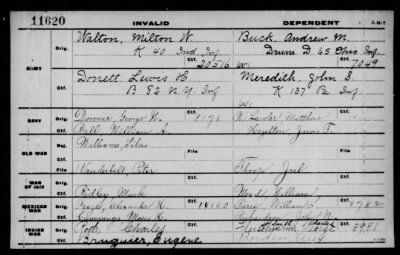 11620
INVALID DEPENDENT
Walton, Milton W. Buck, Andrew M.
Orig. K 40 Ind Inf Orig. Drum D 65 Ohio Inf
Ctf. 20516 Ctf. 7049
ARMY
Dorrett, Lewis H. Meredith, John S.
Orig. B 82 N.Y. Inf Orig. K 137 Pa Inf
Ctf. Ctf.
NAVY Orig. Downie, George W. 1178 Orig. Matthew
Ctf. Bell William A. Ctf. Hazelton, James F.
Williams, Silas
OLD WAR Orig. Orig.
Vanderbilt, Peter Joel
Ctf. Ctf.
WAR OF 1812 Orig. Orig.
Ctf. Ridley, Mark Ctf. Ward William
MEXICAN WAR Orig. Alexander H. 14060 Orig. William 8782
Ctf. Cummings, Moses H. Ctf. Richardson, John
INDIAN WARS Orig. Potts, Charles Orig. George 8981
Ctf. Bruguier, Eugene Ctf.